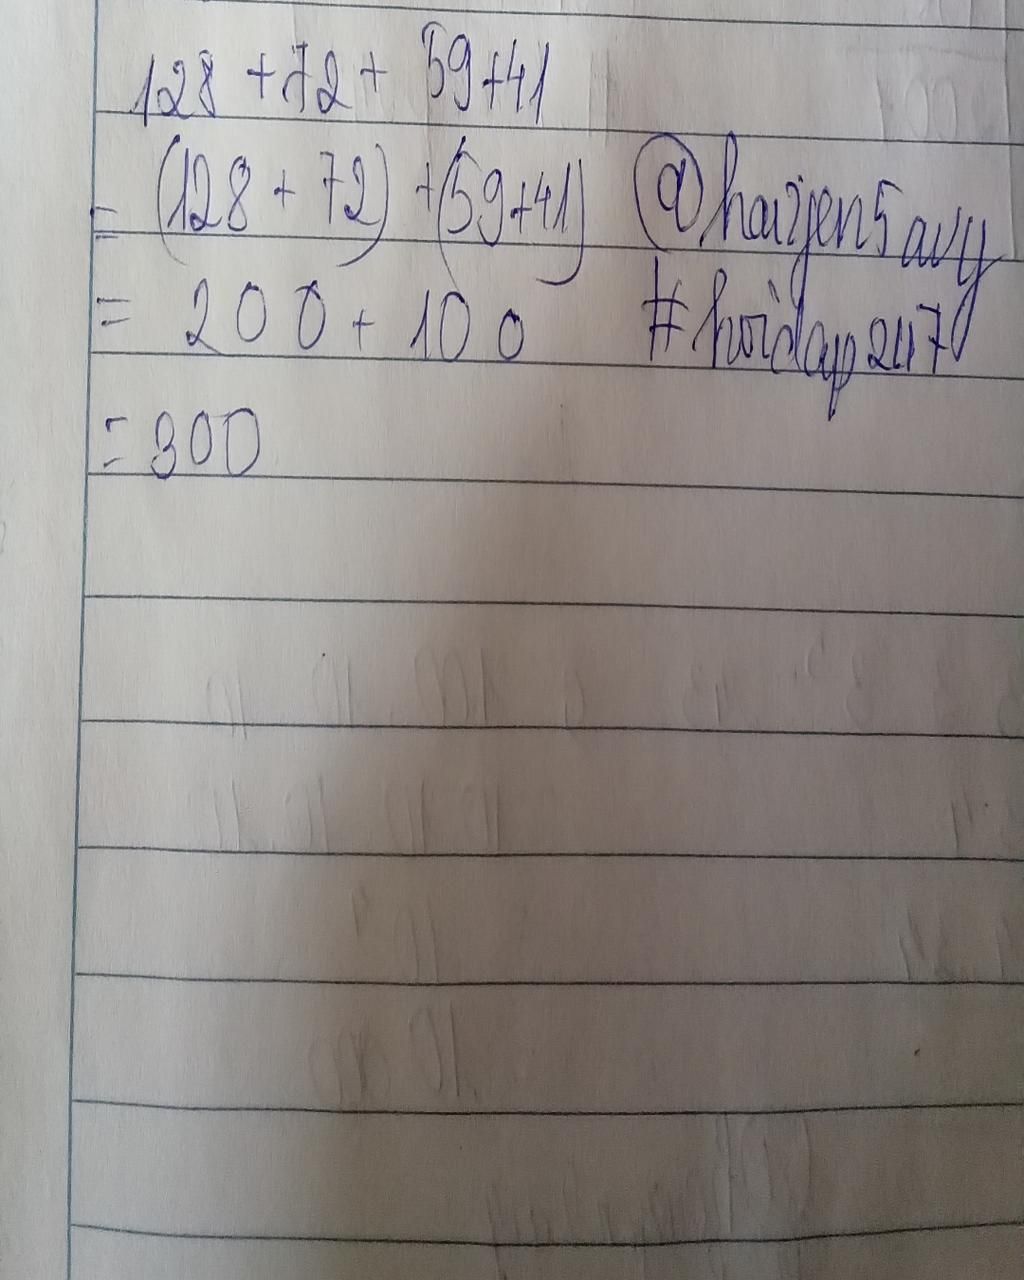 128 + 72 + 59 + 41
= (128 + 72) + (59 + 41)
= 200 + 100
= 300
#hoidap247